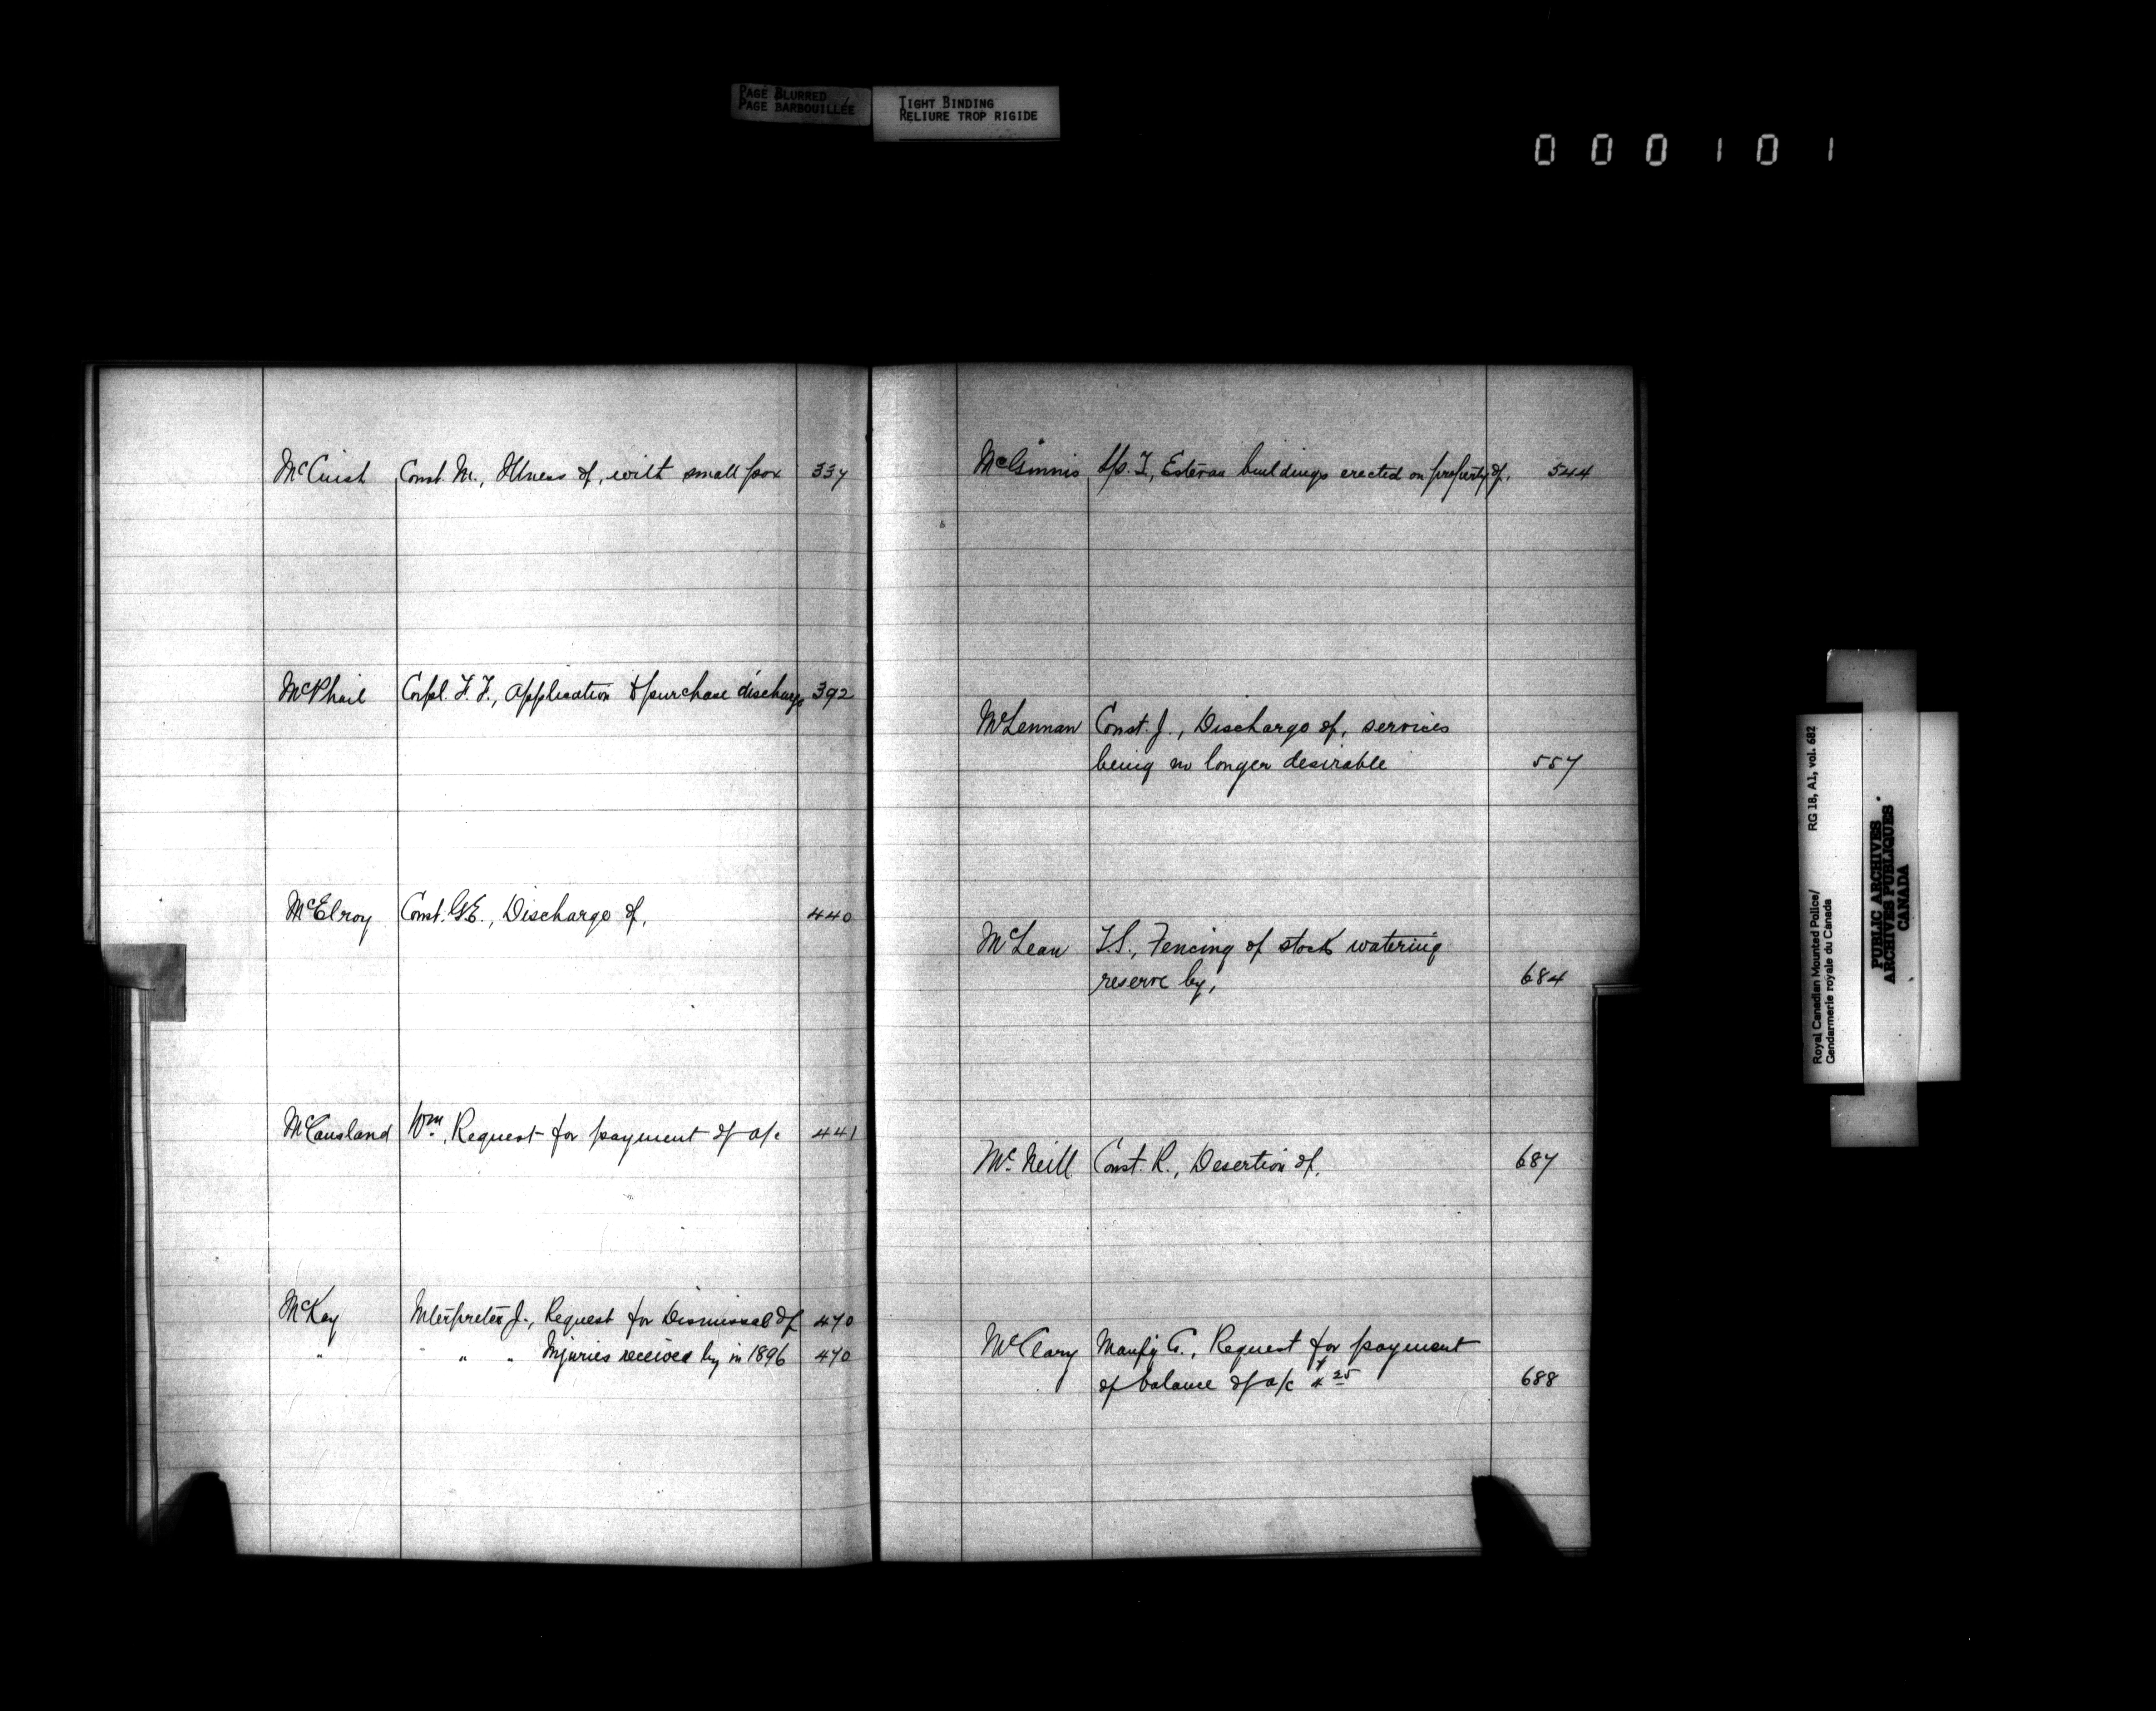 PAGE BLURRED
PAGE BARBOUILLÉE
TIGHT BINDING
RELIURE TROP RIGIDE
000101
McCuish Const. M., Illness of, with small pox 337
McPhail Corpl. F. F., Application to purchase discharge 392
McElroy Const. G.E., Discharge of, 440
McCausland Wm, Request for payment of a/c 441
McKay Interpreter J., Request for Dismissal of 470
" " " Injuries received by in 1896 470
McGinnis T., Estevan buildings erected on property of, 544
McLennan Const. J., Discharge of, services
being no longer desirable 557
McLean T.S., Fencing of stock watering
reserve by, 684
McNeill Const. R., Desertion of, 687
McClary Manfg C., Request for payment
of balance of a/c 25 688
Royal Canadian Mounted Police/ RG 18, A1, vol. 682
Gendarmerie royale du Canada
PUBLIC ARCHIVES
ARCHIVES PUBLIQUES
CANADA